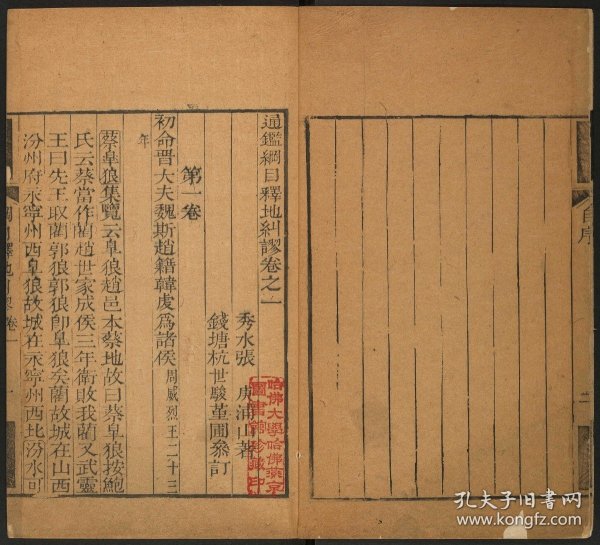 自序
二
通鑑綱目釋地糾謬卷之一
秀水張　庚浦山著
錢塘杭世駿堇圃叅訂
第一卷
初命晋大夫魏斯趙籍韓虔爲諸侯周威烈王二十三
年
蔡皐狼集覽云皐狼趙邑本蔡地故曰蔡皐狼按鮑
氏云蔡當作藺趙世家成侯三年衛敗我藺又武靈
王曰先王取藺郭狼郭狼卽皐狼矣藺故城在山西
汾州府永寧州西皐狼故城在永寧州西北汾水可
綱目釋地糾謬 卷一
一
哈佛大學哈佛燕京
圖書館珍藏印
孔夫子旧书网
www.kongfz.com